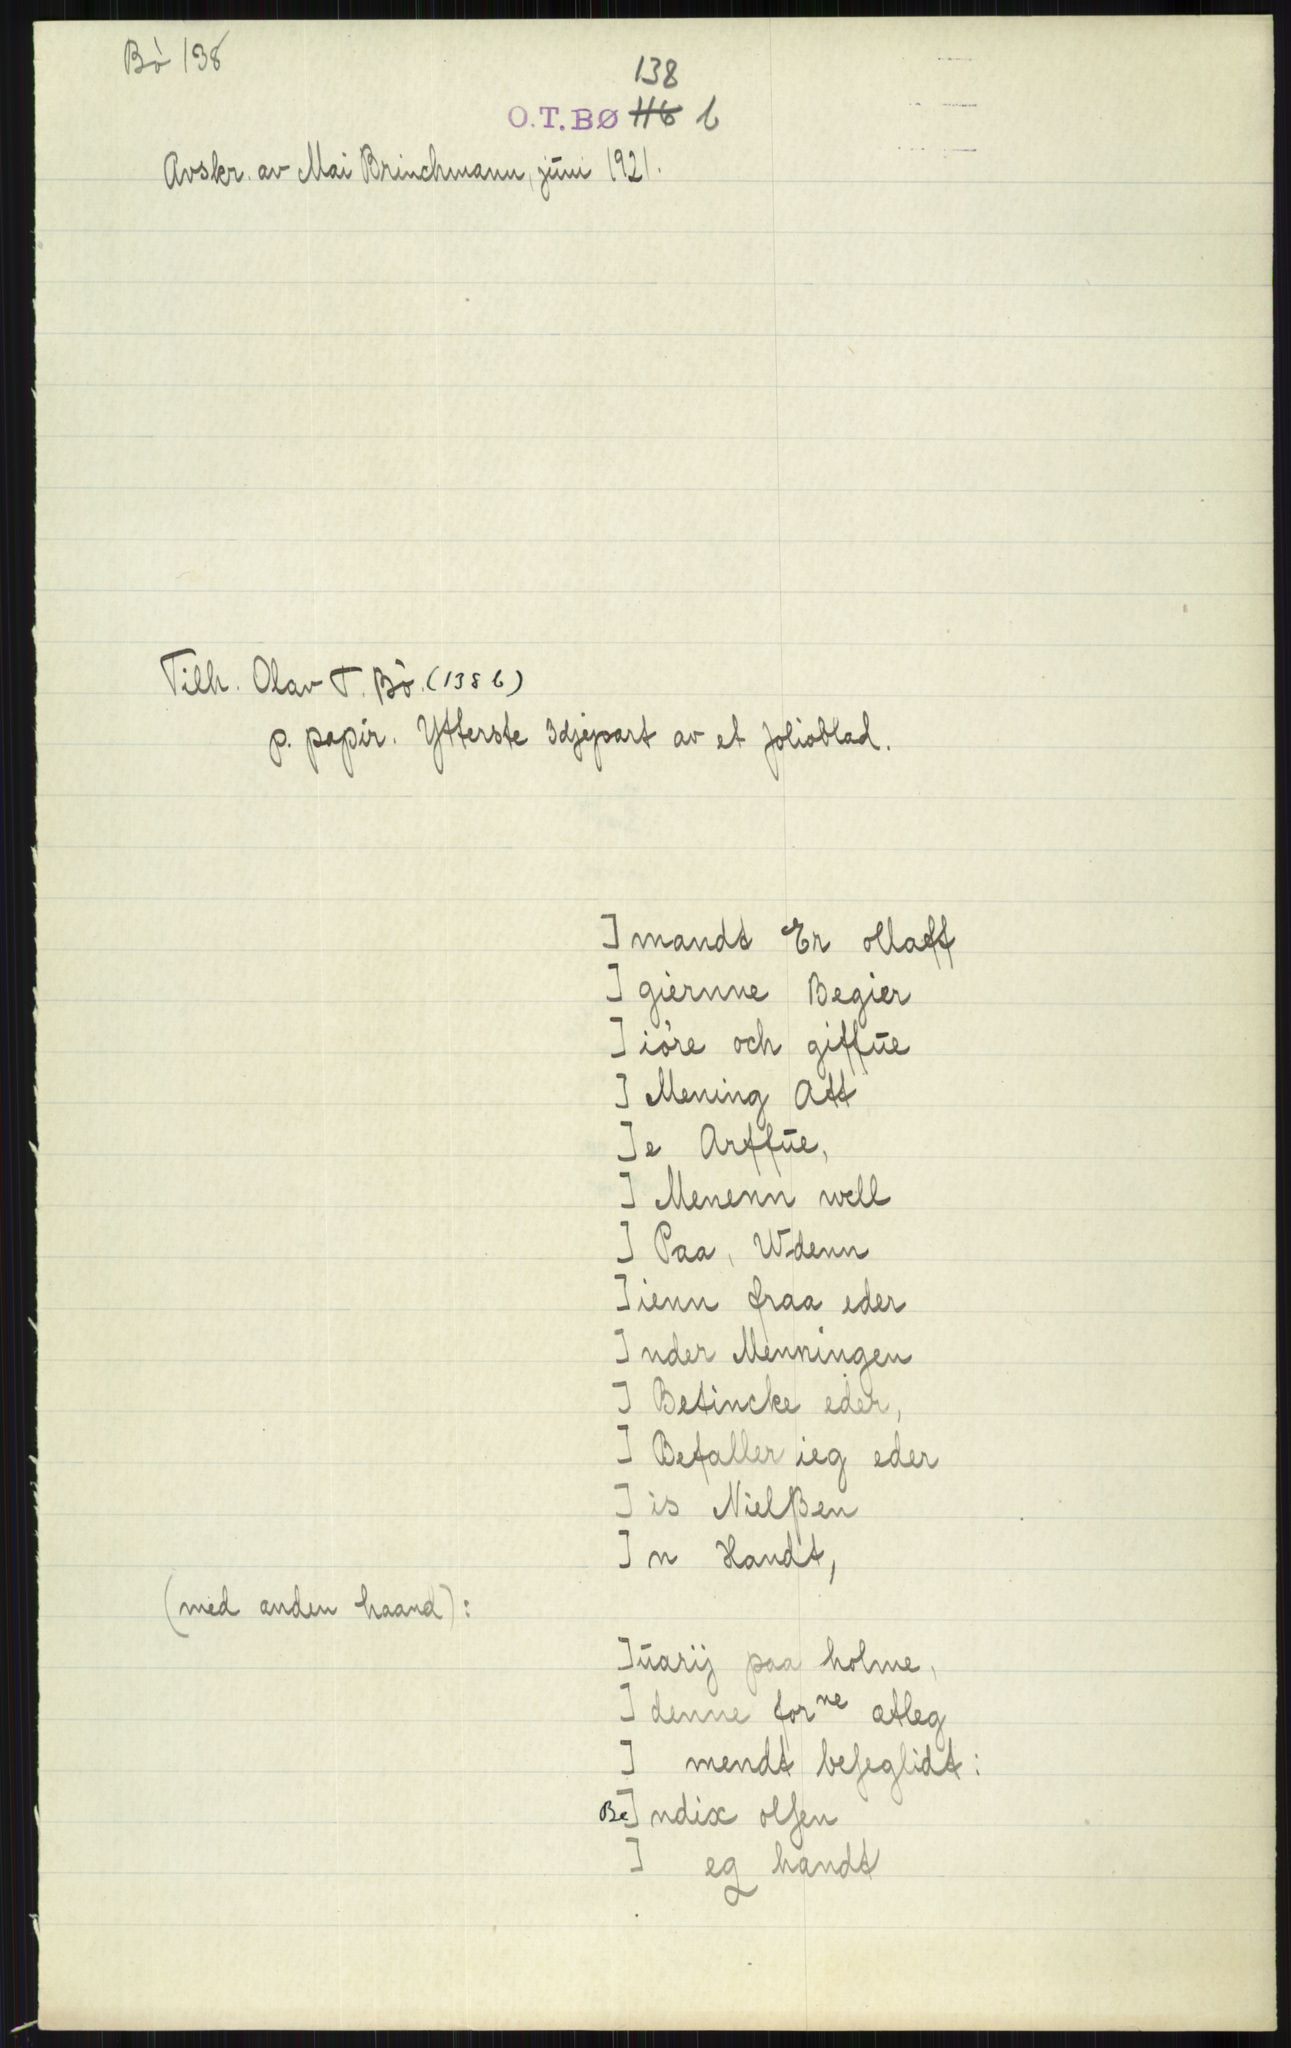 Bò 138
138
O.T.BØ 116 b
Avskr. av Mai Brinchmann, jūni 1921.
Tilh. Olav T. Bò. (138 b)
p. papir. Ytterste 3djepart av et folioblad.
] mandt Er ollaff
] giernne Begier
] iöre och giffūe
] Mening Att
] e Arffūe,
] Menenn well
] Paa, Wdenn
] ienn fraa eder
] nder Menningen
] Betincke eder,
] Befaller ieg eder
] is Nielßen
] n Handt,
(med anden haand):
] ūarij paa holme,
] denne forne atleg
] mendt beseglidt:
Be] ndix olsen
] eg handt